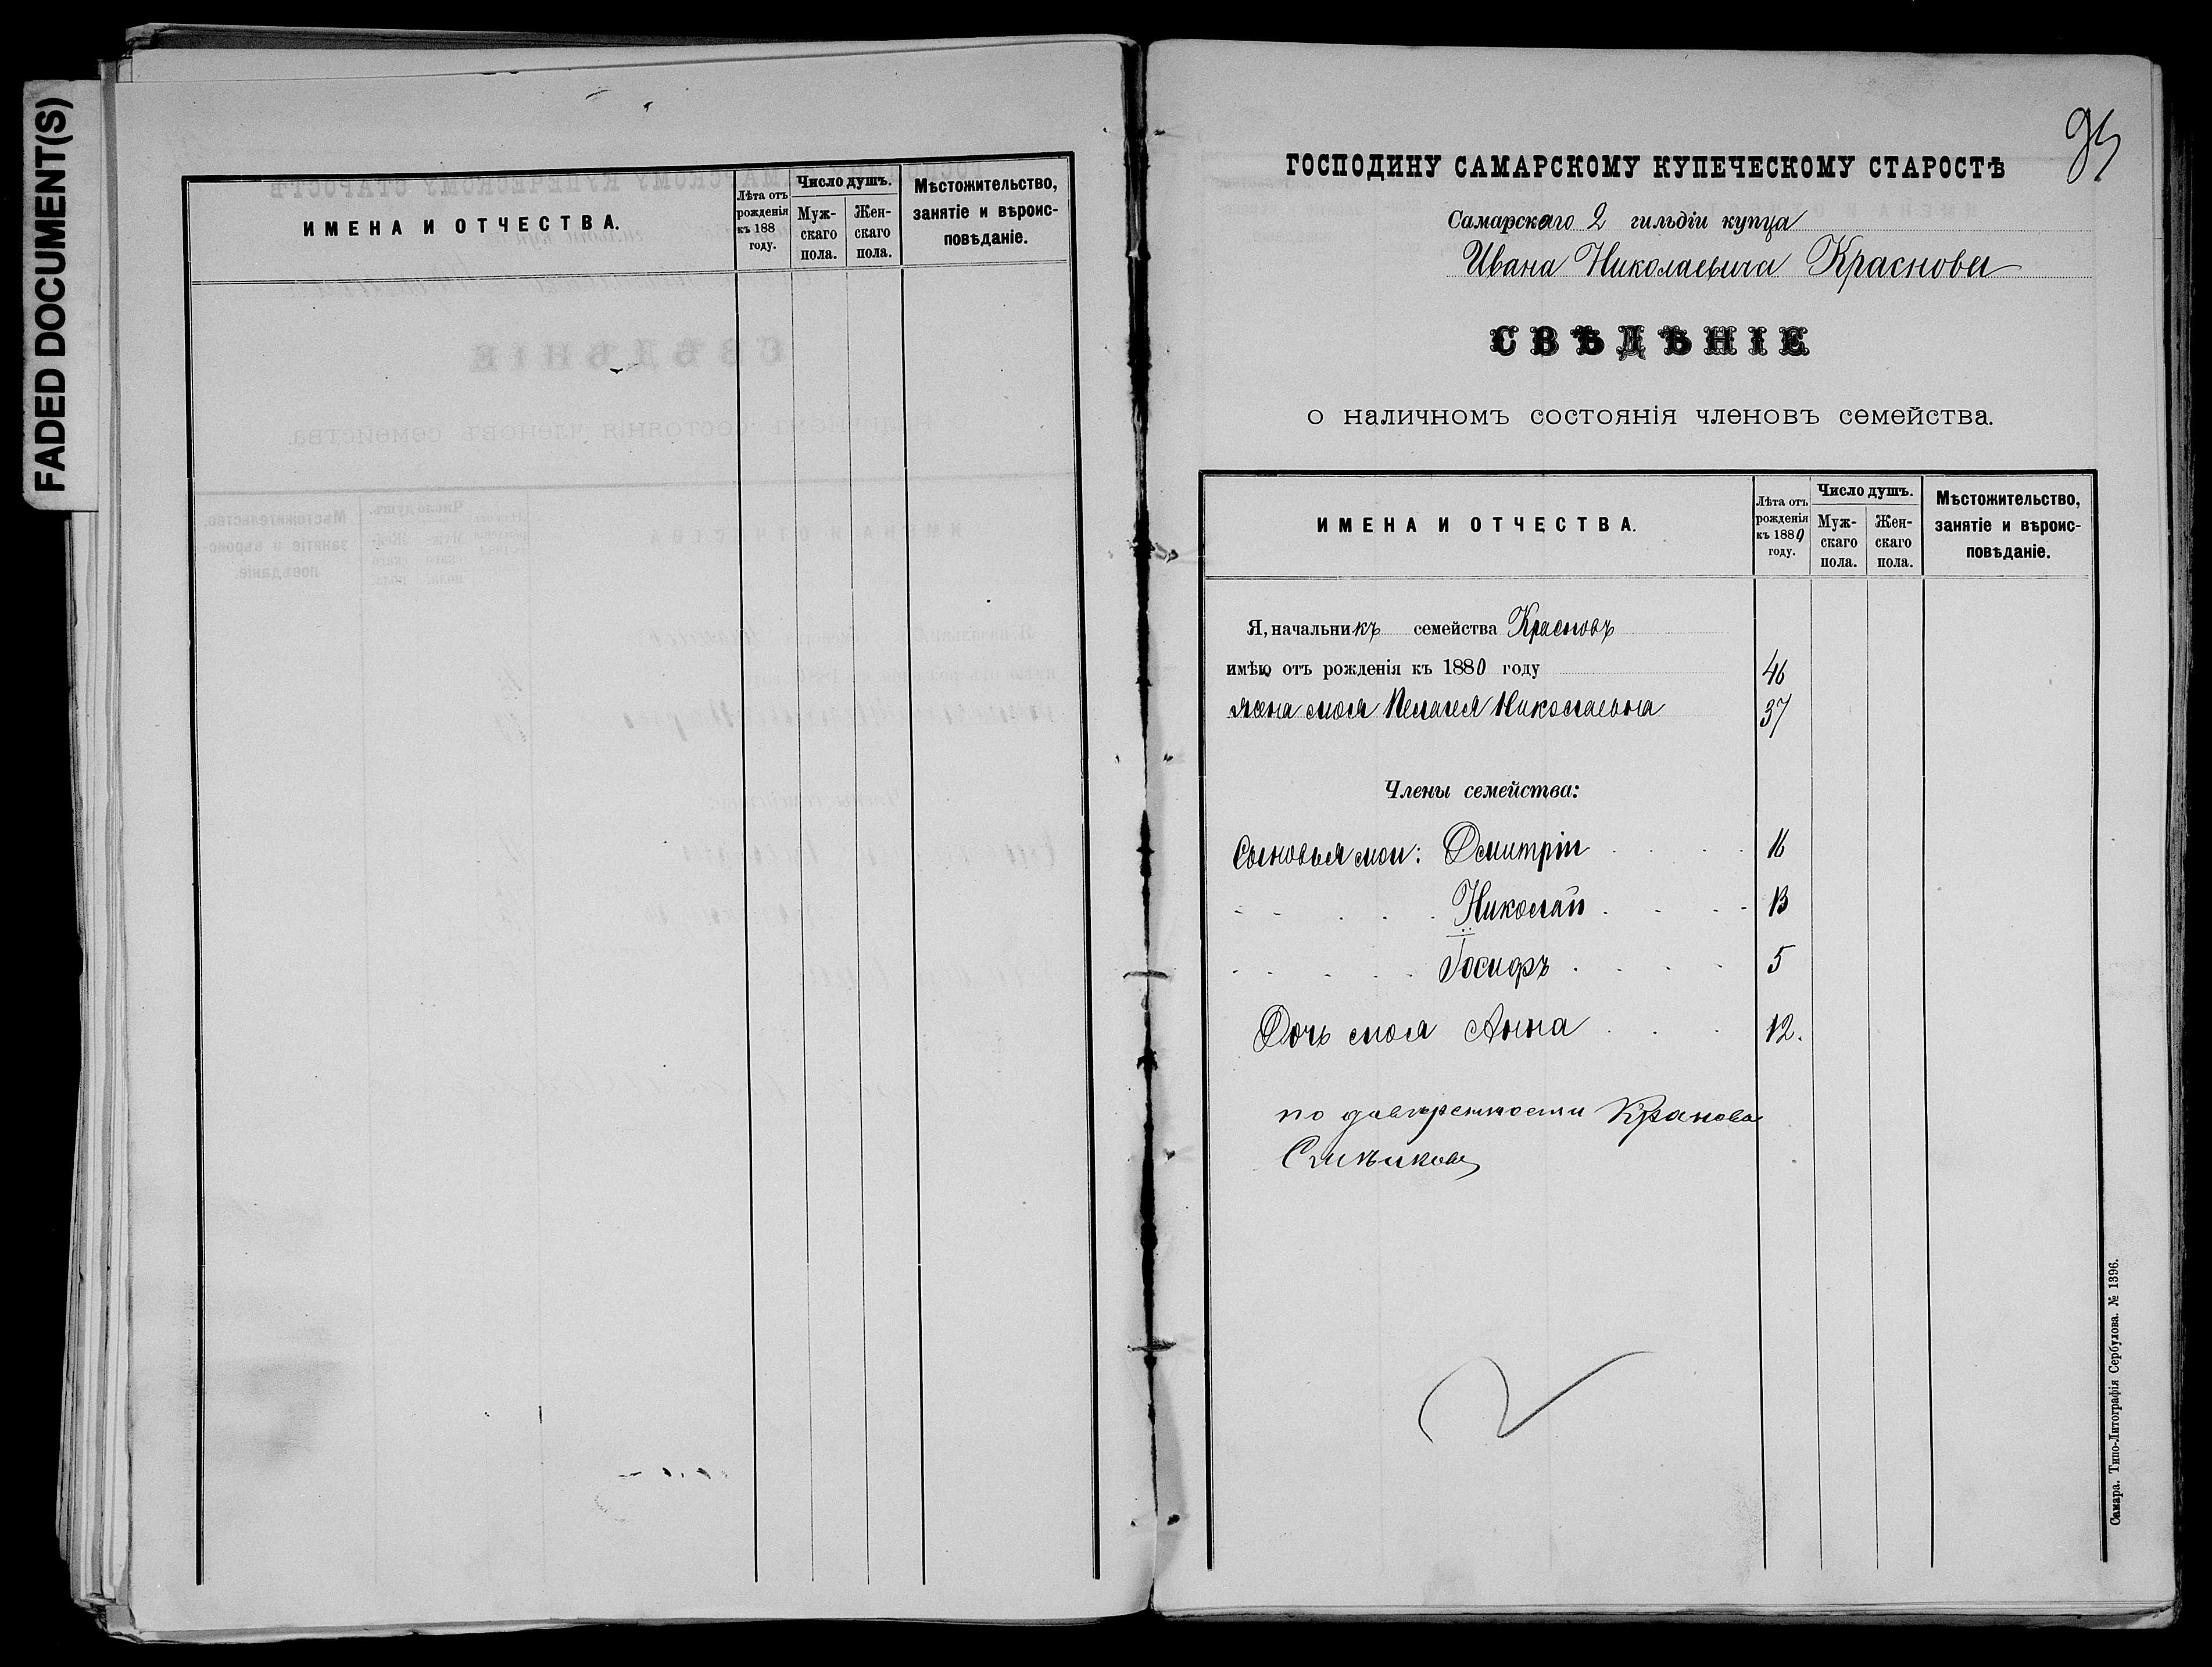 FADED DOCUMENT(S)
ИМЕНА И ОТЧЕСТВА.
Лѣта отъ
рожденія
къ 188
году.
Число душъ.
Муж-
скаго
пола.
Жен-
скаго
пола.
Мѣстожительство,
занятіе и вѣроис-
повѣданіе.
ГОСПОДИНУ САМАРСКОМУ КУПЕЧЕСКОМУ СТАРОСТѢ
Самарскаго 2 гильдіи купца
Ивана Николаевича Краснова
СВѢДѢНІЕ
о наличномъ состоянія членовъ семейства.
ИМЕНА И ОТЧЕСТВА.
Лѣта отъ
рожденія
къ 1880
году.
Число душъ.
Муж-
скаго
пола.
Жен-
скаго
пола.
Мѣстожительство,
занятіе и вѣроис-
повѣданіе.
Я, начальникъ семейства Красновъ
имѣю отъ рожденія къ 1880 году 46
жена моя Пелагея Николаевна 37
Члены семейства:
Сыновья мои: Дмитрій 16
Николай 13
Іосифъ 5
Дочь моя Анна 12.
по довѣренности
Самара. Типо-Литографія Сербулова. № 1396.